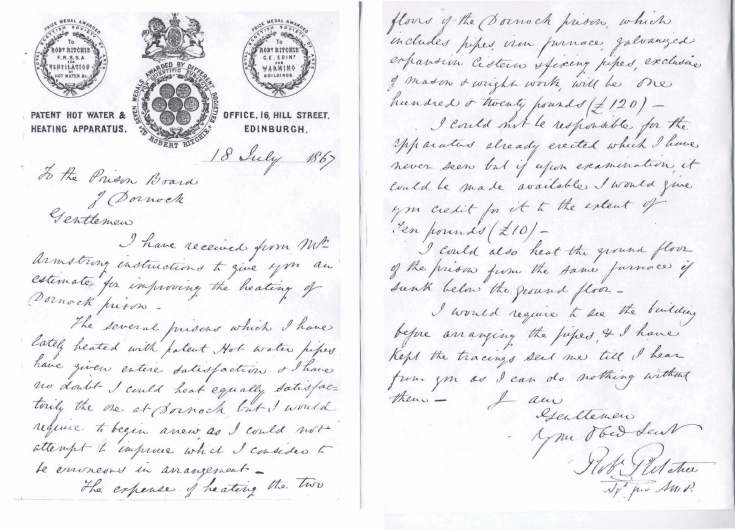 PRIZE MEDAL AWARDED
ROYAL SCOTTISH SOCIETY OF ARTS
TO
ROBT RITCHIE
VENTILATION
HOT WATER &c
SEVEN MEDALS AWARDED BY DIFFERENT SOCIETIES
TO ROBERT RITCHIE
PRIZE MEDAL AWARDED
TO
ROBT RITCHIE
C.E. EDINR
FOR
WARMING
BUILDINGS
PATENT HOT WATER &
HEATING APPARATUS.
OFFICE, 16, HILL STREET,
EDINBURGH.
18 July 1867
To the Prison Board
of Dornock
Gentlemen
I have received from Mr
Armstrong instructions to give you an
estimate for improving the heating of
Dornock prison.
The several prisons which I have
lately heated with patent Hot water pipes
have given entire satisfaction & I have
no doubt I could heat equally satisfac-
torily the one at Dornock but I would
require to begin anew as I could not
attempt to improve what I consider to
be erroneous in arrangement -
The expense of heating the two
floors of the Dornock prison, which
includes pipes, iron furnace, galvanized
expansion Cistern & fixing pipes, exclusive
of mason & wright work, will be one
hundred & twenty pounds (£120) -
I could not be responsible for the
apparatus already erected which I have
never seen but if upon examination it
could be made available I would give
you credit for it to the extent of
Ten pounds (£10) -
I could also heat the ground floor
of the prison from the same furnace if
sunk below the ground floor -
I would require to see the building
before arranging the pipes, & I have
kept the tracings sent me till I hear
from you as I can do nothing without
them - I am
Gentlemen
Your Obed Servt
Robt Ritchie